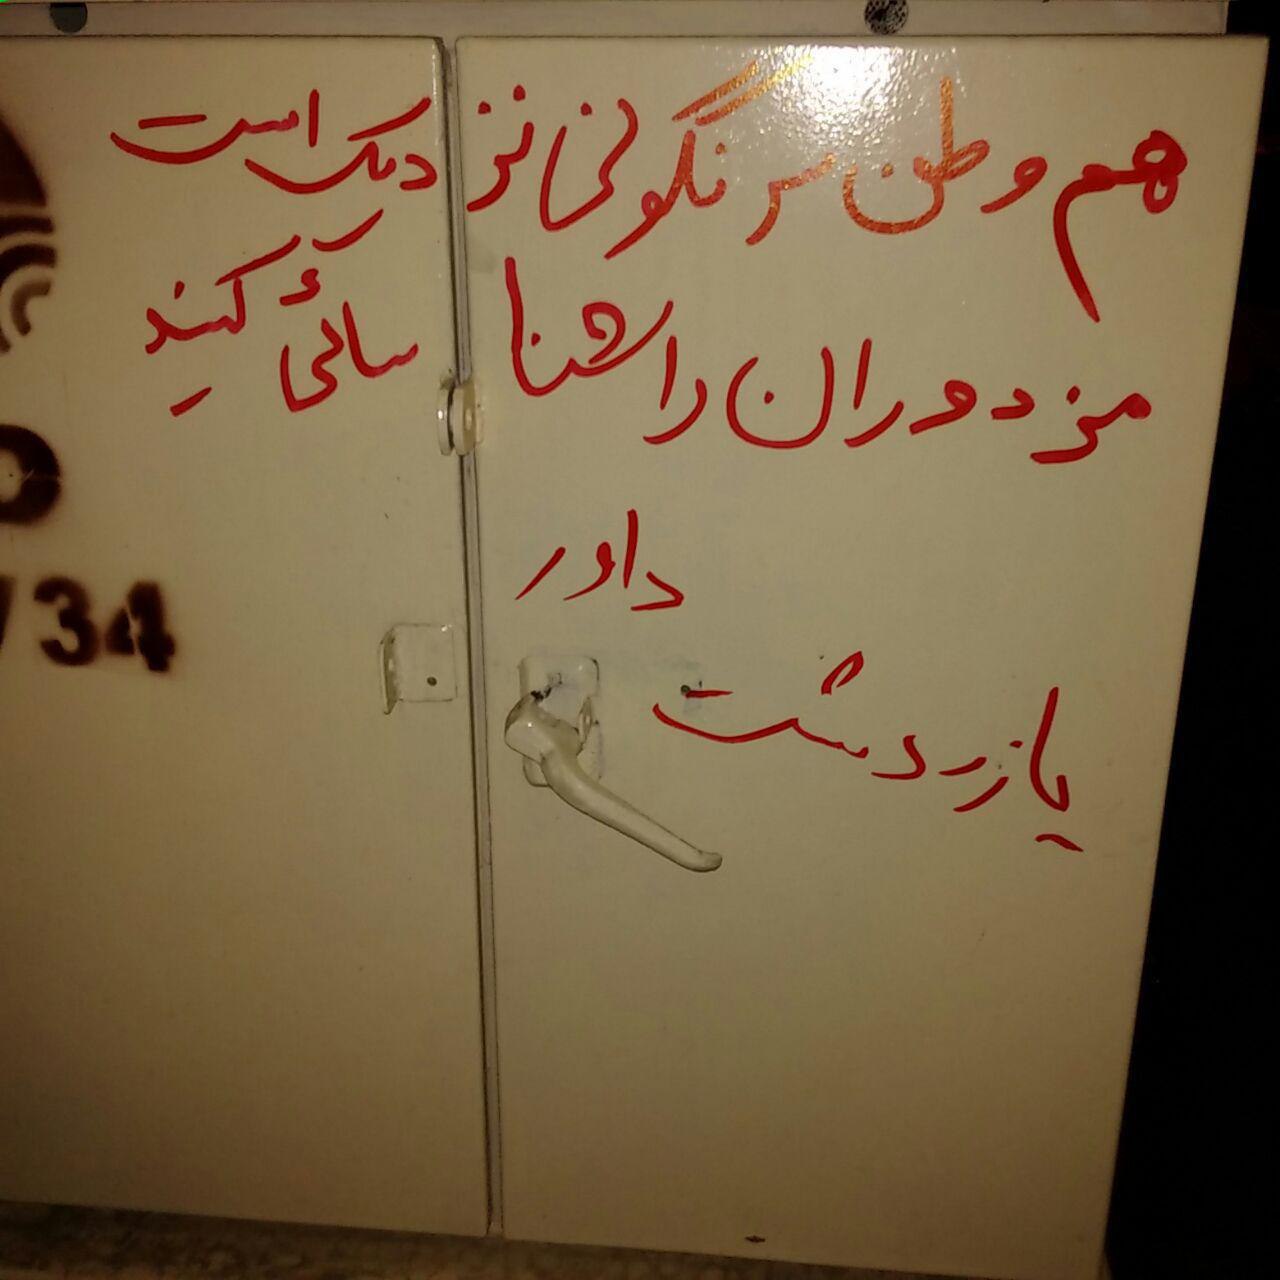 هم وطن سرنگونی نزدیک است
مزدوران را شناسائی کنید
داور
یا زردشت
34